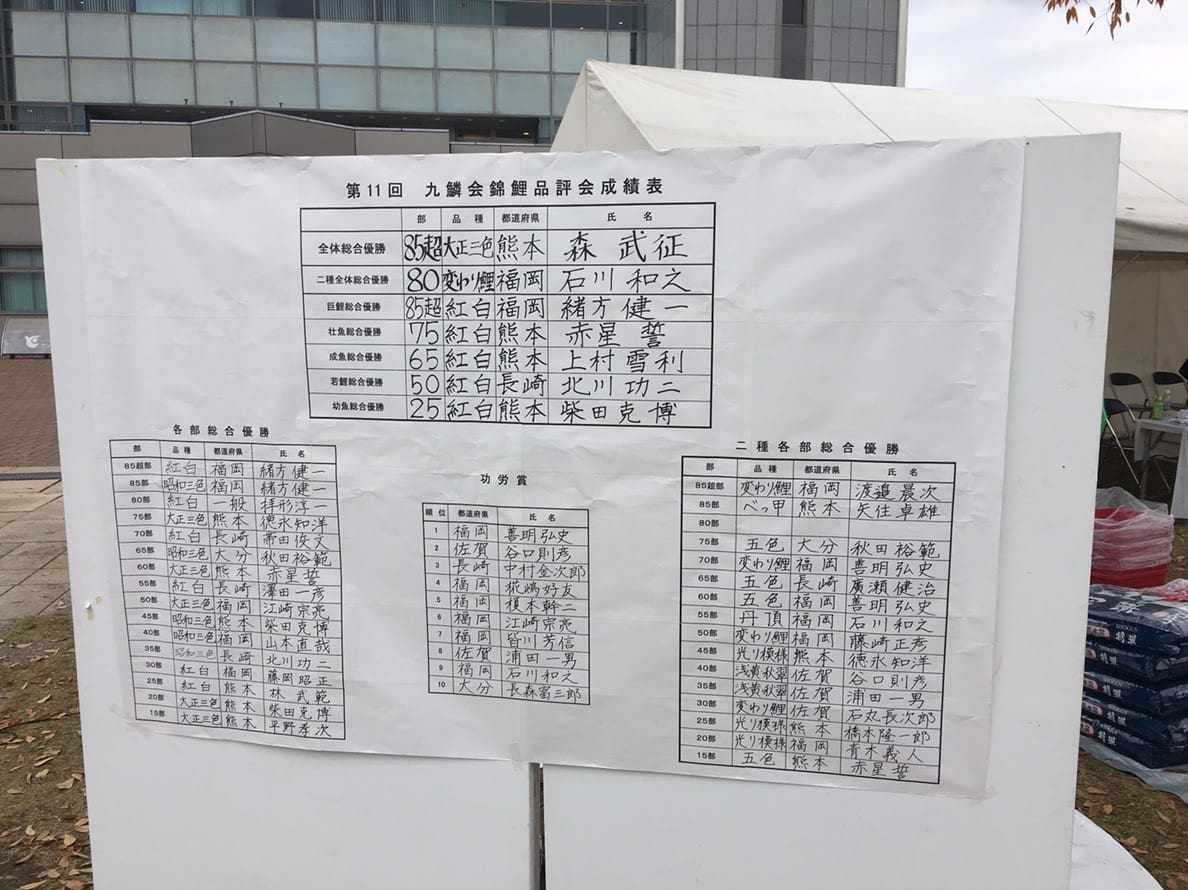 第11回 九鱗会錦鯉品評会成績表
部 品種 都道府県 氏名
全体総合優勝 85超 大正三色 熊本 森 武征
二種全体総合優勝 80 変わり鯉 福岡 石川和之
巨鯉総合優勝 85超 紅白 福岡 緒方健一
壮魚総合優勝 75 紅白 熊本 赤星 誓
成魚総合優勝 65 紅白 熊本 上村雪利
若鯉総合優勝 50 紅白 長崎 北川功二
幼魚総合優勝 25 紅白 熊本 柴田克博
各部総合優勝
部 品種 都道府県 氏名
85超部 紅白 福岡 緒方健一
85部 昭和三色 福岡 緒方健一
80部 紅白 一般 拝形淳一
75部 大正三色 熊本 徳永知洋
70部 紅白 長崎 帯田俊文
65部 昭和三色 大分 秋田裕範
60部 大正三色 熊本 赤星誓
55部 紅白 長崎 澤田一彦
50部 大正三色 福岡 江崎宗亮
45部 昭和三色 熊本 柴田克博
40部 昭和三色 福岡 山本直哉
35部 昭和三色 長崎 北川功二
30部 紅白 福岡 藤岡昭正
25部 紅白 熊本 林武範
20部 大正三色 熊本 柴田克博
15部 大正三色 熊本 平野孝次
功労賞
順位 都道府県 氏名
1 福岡 善明弘史
2 佐賀 谷口則彦
3 長崎 中村金次郎
4 福岡 椛嶋好友
5 福岡 榎本幹二
6 福岡 江崎宗亮
7 福岡 皆川芳信
8 佐賀 浦田一男
9 福岡 石川和之
10 大分 長森富三郎
二種各部総合優勝
部 品種 都道府県 氏名
85超部 変わり鯉 福岡 渡邉晨次
85部 べっ甲 熊本 矢住卓雄
80部
75部 五色 大分 秋田裕範
70部 変わり鯉 福岡 善明弘史
65部 五色 長崎 廣瀬健治
60部 五色 福岡 善明弘史
55部 丹頂 福岡 石川和之
50部 変わり鯉 福岡 藤崎正彦
45部 光り模様 熊本 徳永知洋
40部 浅黄秋翠 佐賀 谷口則彦
35部 浅黄秋翠 佐賀 浦田一男
30部 変わり鯉 佐賀 石丸長次郎
25部 光り模様 熊本 橋本隆一郎
20部 光り模様 福岡 青木義人
15部 五色 熊本 赤星誓
SHOGUN